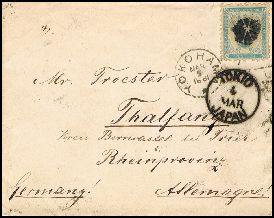 YOKOHAMA
MAR
1881
TOKIO
4
MAR
JAPAN
Mr. Troester
Thalfang
Kreis Berncastel bei Trier
Rheinprovinz
Germany! Allemagne!